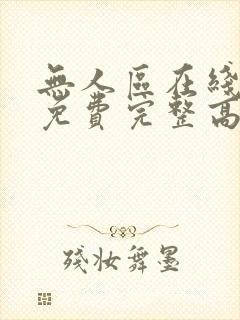 無人区在綫
免费完整高
残妆舞墨